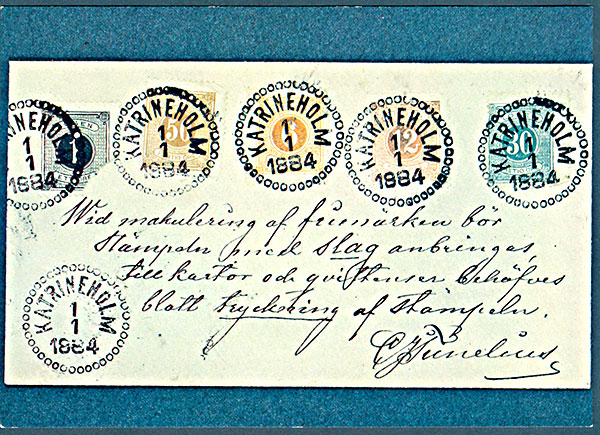 KATRINEHOLM 1 1 1884
KATRINEHOLM 1 1 1884
KATRINEHOLM 1 1 1884
KATRINEHOLM 1 1 1884
KATRINEHOLM 1 1 1884
1
50
6
12
30
Wid makulering af frimärken bör
Stämpeln med slag anbringas,
till kartor och qvittenser behöfves
blott tryckning af Stämpeln.
KATRINEHOLM 1 1 1884